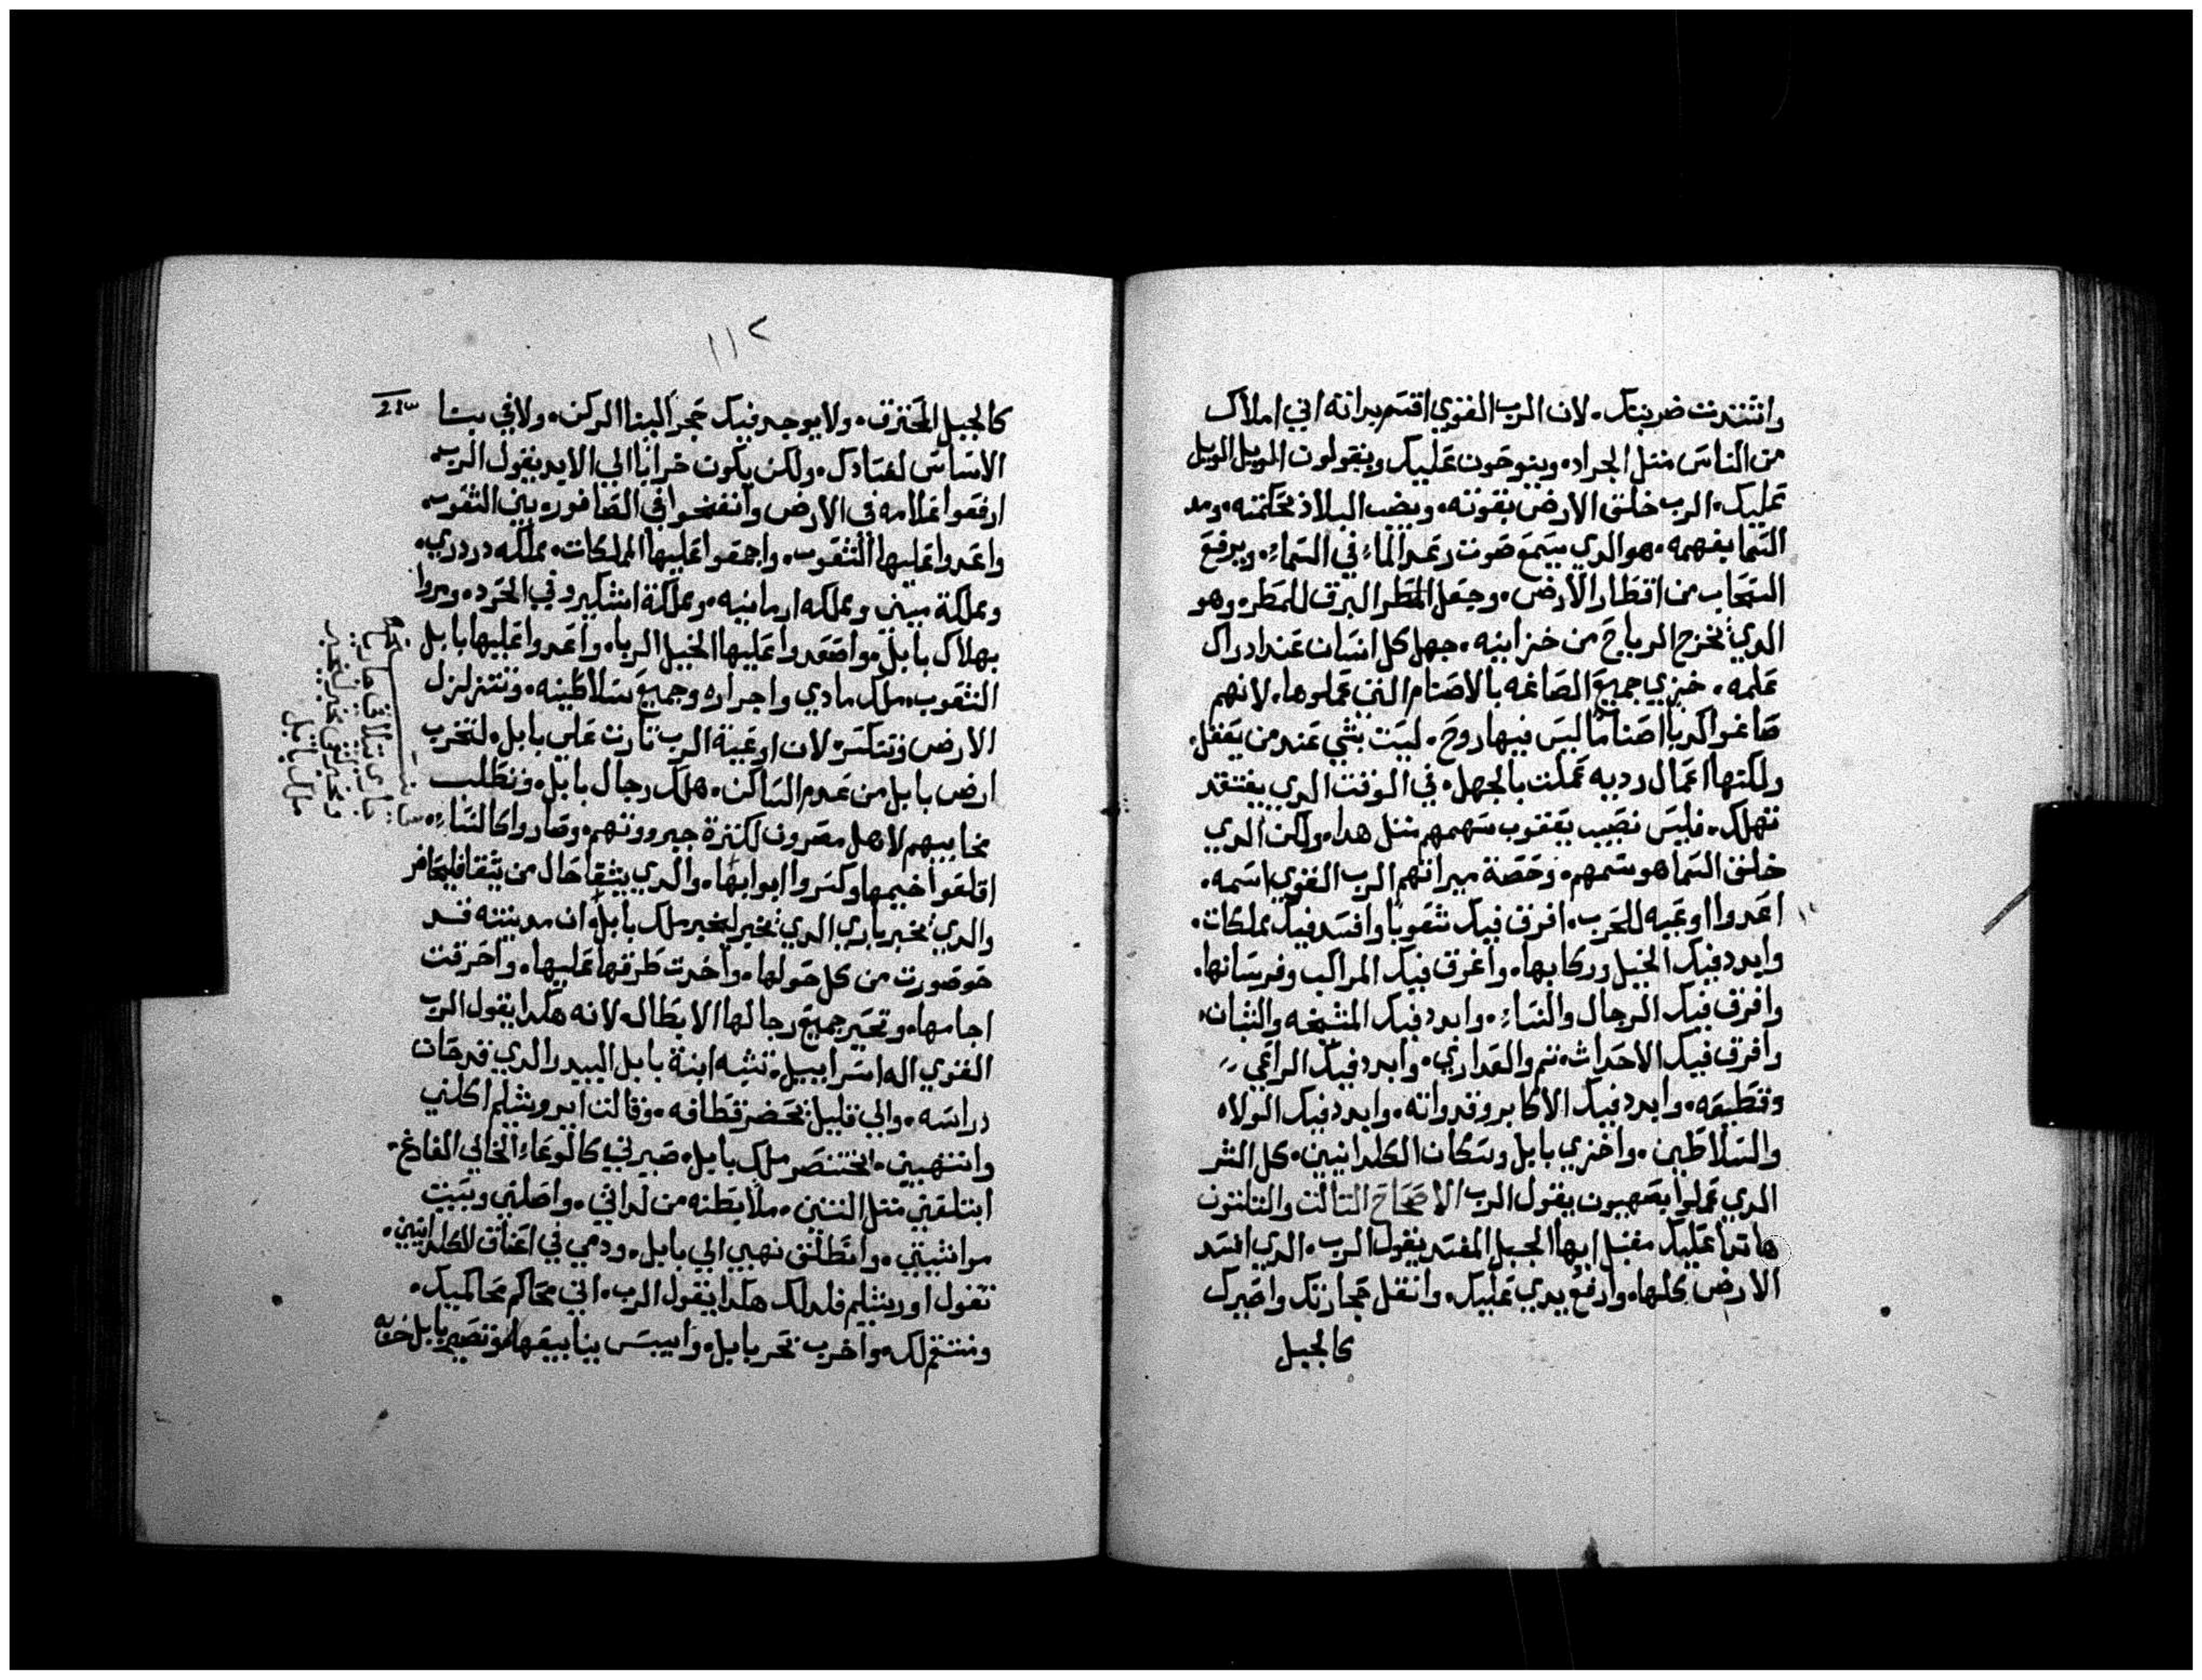 واشتدت ضربتك. لان الرب القوي اقسم بدانه اني املاك
من الناس متل الجراد. وينوحون عليك ويقولون الويل الويل
عليك. الرب خلق الارض بقوته. ونصب البلاد بحكمته. ومد
السما بفهمه. هو الدي يسمع صوت رعد الماء في السماء. ويرفع
السحاب من اقطار الارض. وجعل المطر البرق للمطر. وهو
الدي يخرج الرياح من خزاينه. جهل كل انسان عند ادراك
علمه. خزي جميع الصاغه بالاصنام التي عملوها. لانهم
صاغوا كدبا اصناما ليس فيها روح. ليست بشي عند من يعقل.
ولكنها اعمال رديه عملت بالجهل. في الوقت الدي يفتقد
تهلك. فليس نصيب يعقوب سهمهم متل هدا. ولكن الدي
خلق السما هو سهمهم. وحصة ميراتهم الرب القوي اسمه.
اعدوا اوعيه للحرب. افرق فيك شعوبا وافسد فيك مملكات.
وابدد فيك الخيل وركابها. واغرق فيك المراكب وفرسانها.
وافرق فيك الرجال والنساء. وابدد فيك المشيخه والشبان.
وافرق فيك الاحداث تم والعداري. وابدد فيك الراعي
وقطيعه. وابدد فيك الاكابر وفدوانه. وابدد فيك الولاه
والسلاطين. واخزي بابل وسكان الكلدانيين. كل الشر
الدي عملوا بصهيون يقول الرب الاصحاح التالت والتلتون
ها ندا عليك مقبل ايها الجبل المفسد يقول الرب. الدي افسد
الارض كلها. وارفع يدي عليك. وانقل حجارتك واصيرك
كالجبل
١١٢
كالجبل المحترق. ولا يوجد فيك حجر البنا الركن. ولا في بنا
الاساس لفسادك. ولكن يكون خرابا الي الابد يقول الرب.
ارفعوا علامه في الارض وانفخوا في الصافوره بين الشعوب
واعدوا عليها الشعوب. واجمعوا عليها المملكات. مملكه دردري.
ومملكة ميني ومملكه ارمانيه. ومملكة اشكيرو في الحرد. ومروا
بهلاك بابل. واصعدوا عليها الخيل الربا. واعدوا عليها بابل
الشعوب. ملك مادي واجراره وجميع سلاطينه. وتتزلزل
الارض وتتكسر. لان اوعية الرب تارت علي بابل. لتخرب
ارض بابل من عدم الساكن. هلك رجال بابل. ونطلب
نحاببهم لاهل مصرون لكترة جبروتهم. وصاروا كالنساء.
اقلعوا خيمها وكسروا ابوابها. والدي يشقا حال من يشقا فليحافر
والدي يخبر يادي الدي يخبر ليخبر ملك بابل. ان مدينته قد
حوصورت من كل حولها. واخدت طرقها عليها. واحرقت
اجامها. وتحير جميع رجالها الابطال. لانه هكدا يقول الرب
القوي اله اسراييل. تشبه ابنة بابل البيدر الدي قد حان
دراسه. والي قليل يحضر قطافه. وقالت ايروشليم اكلني
وانتهبني. بختنصر ملك بابل. صيرني كالوعاء الخالي الفارغ.
ابتلعني متل التنين. ملا بطنه من لداتي. واضلني وببيت
مواشيتي. وانطلق نهبي الي بابل. ودمي في اعناق الكلدانيين.
تقول اوريشليم فلدلك هكدا يقول الرب. اني محاكم محاكميك.
ومنتقم لك. واخرب بحر بابل. وايبس ينابيعها. وتصير بابل خربه